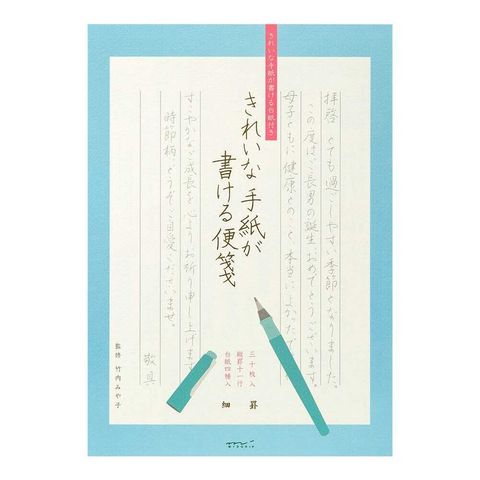 きれいな手紙が書ける台紙付き
拝啓 とても過ごしやすい季節となりました。
この度はご長男の誕生おめでとうございます。
母子ともに健康とのこと、本当によかったで
きれいな手紙が
書ける便箋
すこやかなご成長を心よりお祈り申し上げます
時節柄、どうぞご自愛くださいませ。
敬具
監修 竹内みや子
三十枚入
縦罫十一行
台紙四種入
細罫
MIDORI